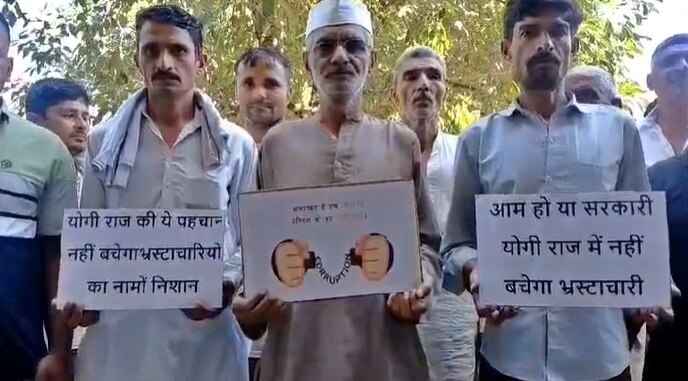 योगी राज की ये पहचान
नहीं बचेगाभ्रस्टाचारियो
का नामों निशान
भ्रष्टाचार है एक
CORRUPTION
आम हो या सरकारी
योगी राज में नहीं
बचेगा भ्रस्टाचारी